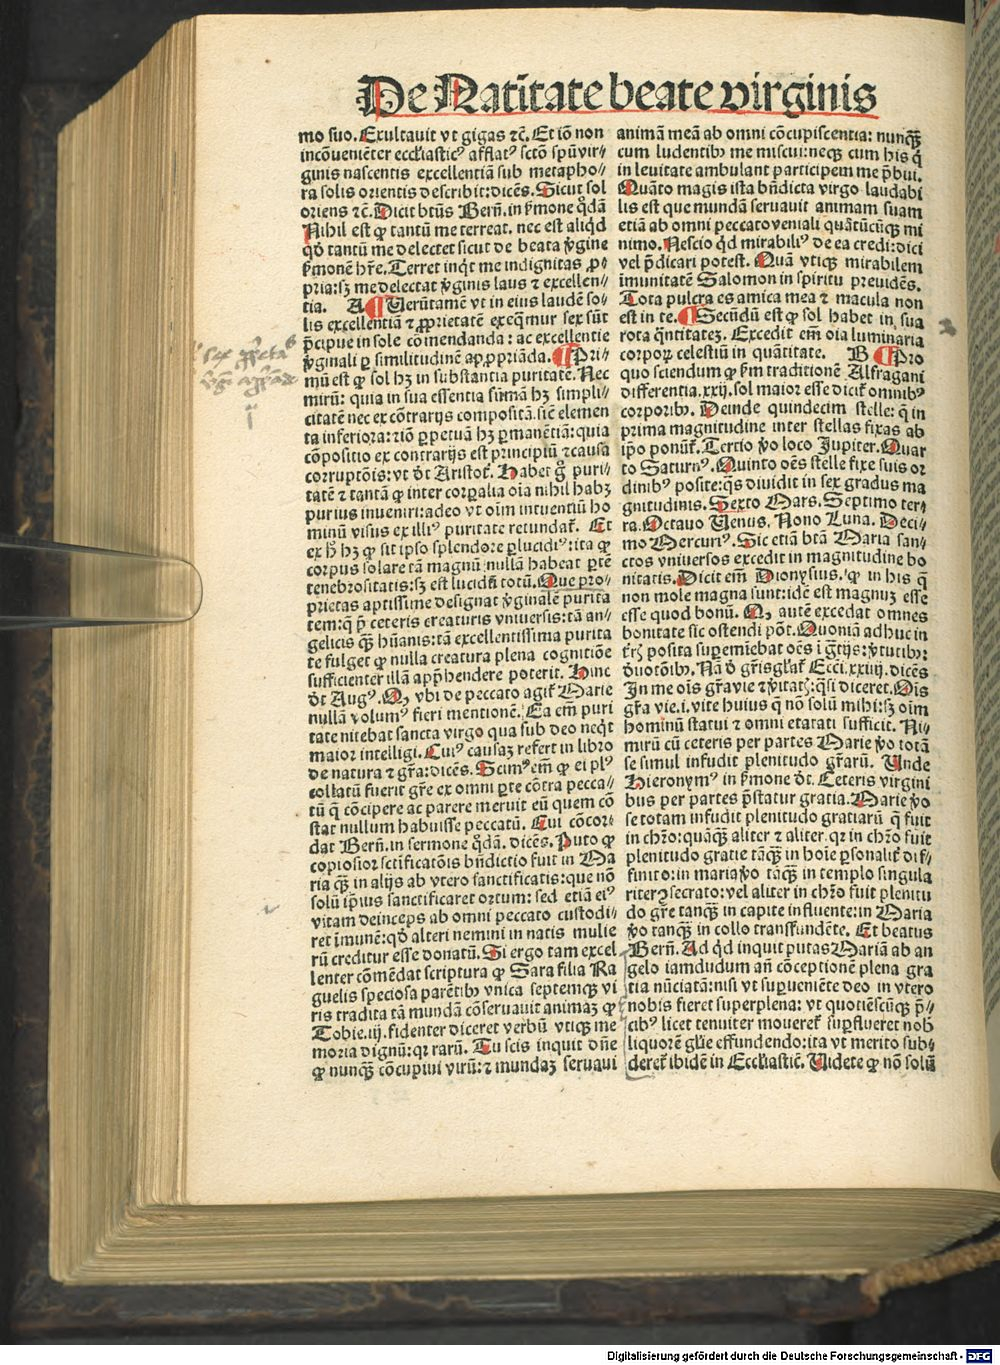 De Natiuitate beate virginis
mo suo. Exultauit vt gigas ⁊c̄. Et iō non
incōueniēter eccl'iastic⁹ afflat⁹ sctō spūvir⸗
ginis nascentis excellentiā sub metapho⸗
ra solis orientis describit: dicēs. Sicut sol
oriens ⁊c̄. Dicit btūs Bern̄. in ẜmone q̊dā
Nihil est ꝙ tantū me terreat. nec est aliqd
qd̓ tantū me delectet sicut de beata ṽgine
ẜmonē hr̄e. Terret inq̇t me indignitas ꝓ⸗
pria: sꝫ me delectat ṽginis laus ⁊ excellen⸗
tia. A ¶ Uerūtamē vt in eius laudē so⸗
lis excellentiā ⁊ ꝓprietatē exeq̄mur sex sūt
p̄cipue in sole cōmendanda: ac excellentie
ṽginali ꝑ similitudinē apꝓpriāda. ¶ Pri⸗
mū est ꝙ sol hꝫ in substantia puritatē. Nec
mirū: quia in sua essentia sūmā hꝫ simpli⸗
citatē nec ex cōtrarijs compositā. sic̄ elemen
ta inferiora: rō ꝑpetuā hꝫ ꝑmanētiā: quia
cōpositio ex contrarijs est principiū ⁊ causa
corruptōis: vt d̓t Aristot̓. Habet g̊ puri⸗
tatē ⁊ tantā ꝙ inter corꝑalia oīa nihil habꝫ
purius inueniri: adeo vt oīm intuentiū ho
minū visus ex illi⁹ puritate retundat̓. Et
ex h̓ hꝫ ꝙ sit ipso splendore ꝑlucid⁹: ita ꝙ
corpus solare tā magnū nullā habeat ꝑtē
tenebrositatis: sꝫ est lucidū totū. Que pro⸗
prietas aptissime designat ṽginalē purita
tem: q̄ p̄ ceteris creaturis vniuersis: tā an⸗
gelicis q̄ꝫ hūanis: tā excellentissima purita
te fulget ꝙ nulla creatura plena cognitiōe
sufficienter illā app̄hendere poterit. Hinc
d̓t Aug⁹. Qꝫ vbi de peccato agit̓ Marie
nullā volum⁹ fieri mentionē. Ea em̄ puri
tate nitebat sancta virgo qua sub deo neq̇t
maior intelligi. Cui⁹ causaꝫ refert in libro
de natura ⁊ gr̄a: dicēs. Scim⁹ em̄ ꝙ ei pl⁹
collatū fuerit gr̄e ex omni ꝑte cōtra pecca⸗
tū q̄ cōcipere ac parere meruit eū quem cō
stat nullum habuisse peccatū. Cui cōcor⸗
dat Bern̄. in sermone q̊dā. dicēs. Puto ꝙ
copiosior sctīficatōis bn̄dictio fuit in Ma
ria q̄ꝫ in alijs ab vtero sanctificatis: que nō
solū ip̄ius sanctificaret ortum: sed etiā ei⁹
vitam deinceps ab omni peccato custodi⸗
ret īmunē: qd̓ alteri nemini in natis mulie
rū creditur esse donatū. Si ergo tam excel
lenter cōmēdat scriptura ꝙ Sara filia Ra
guelis speciosa parētib⁹ vnica septemqꝫ vi
ris tradita tā mundā cōseruauit animaꝫ ꝙ
Tobie. iij. fidenter diceret verbū vtiqꝫ me
moria dignū: qꝛ rarū. Tu scis inquit dn̄e
ꝙ nunq̄ꝫ cōcupiui virū: ⁊ mundaꝫ seruaui
animā meā ab omni cōcupiscentia: nunq̄ꝫ
cum ludentib⁹ me miscui: neqꝫ cum his q̄
in leuitate ambulant participem me p̄bui.
Quāto magis ista bn̄dicta virgo laudabi
lis est que mundā seruauit animam suam
etiā ab omni peccato veniali quātūcūqꝫ mi
nimo. Nescio qd̓ mirabili⁹ de ea credi: dici
vel p̄dicari potest. Quā vtiqꝫ mirabilem
īmunitatē Salomon in spiritu preuidēs.
Tota pulcra es amica mea ⁊ macula non
est in te. ¶ Secūdū est ꝙ sol habet in sua
rota q̄ntitateꝫ. Excedit em̄ oīa luminaria
corpoꝝ celestiū in quātitate. B ¶ Pro
quo sciendum ꝙ ẜm traditionē Alfragani
differentia. xxij. sol maior esse dicit̓ omnib⁹
corporib⁹. Deinde quindecim stelle: q̄ in
prima magnitudine inter stellas fixas ab
ip̄o ponūt̓. Tertio ṽo loco Jupiter. Quar
to Saturn⁹. Quinto oēs stelle fixe suis or
dinib⁹ posite: q̄s diuidit in sex gradus ma
gnitudinis. Sexto Mars. Septimo ter⸗
ra. Octauo Uenus. Nono Luna. Deci⸗
mo Mercuri⁹. Sic etiā btā Maria san⸗
ctos vniuersos excedit in magnitudine bo
nitatis. Dicit em̄ Dionysius. ꝙ in his q̄
non mole magna sunt: idē est magnuꝫ esse
esse quod bonū. Qꝫ autē excedat omnes
bonitate sic ostendi pōt. Quoniā adhuc in
tr̄is posita suꝑemiebat oēs ī gr̄tijs: ṽtutib⁹:
d̓uotōib⁹. Nā d̓ gr̄is gl'at̓ Ecci. xxiiij. dicēs
In me oīs gr̄a vie ⁊ ṽitatꝭ: q̄si diceret. Oīs
gr̄a vie. i. vite huius q̄ nō solū mihi: sꝫ oīm
hominū statui ⁊ omni etatati sufficit. Ni⸗
mirū cū ceteris per partes Marie ṽo totā
se simul infudit plenitudo gr̄arū. Unde
Hieronym⁹ in ẜmone d̓t. Ceteris virgini
bus per partes p̄statur gratia. Marie ṽo
se totam infudit plenitudo gratiarū q̄ fuit
in chr̄o: quāq̄ꝫ aliter ⁊ aliter. qꝛ in chr̄o fuit
plenitudo gratie tāq̄ꝫ in hoīe ꝑsonalit̓ dif⸗
finito: in maria ṽo tāq̄ꝫ in templo singula
riter ꝯsecrato: vel aliter in chr̄o fuit plenitu
do gr̄e tanq̄ꝫ in capite influente: in Maria
ṽo tanq̄ꝫ in collo transfundēte. Et beatus
Bern̄. Ad qd̓ inquit putas Mariā ab an
gelo iamdudum añ cōceptionē plena gra
tia nūciatā: nisi vt suꝑueniēte deo in vtero
nobis fieret superplena: vt quotiēscūqꝫ p̄⸗
cib⁹ licet tenuiter moueret̓ suꝑflueret nob̓
liquorē gl'ie effundendo: ita vt merito sub⸗
deret̓ ibidē in Eccl'iastic̄. Uidete ꝙ nō solū
Digitalisierung gefördert durch die Deutsche Forschungsgemeinschaft - DFG